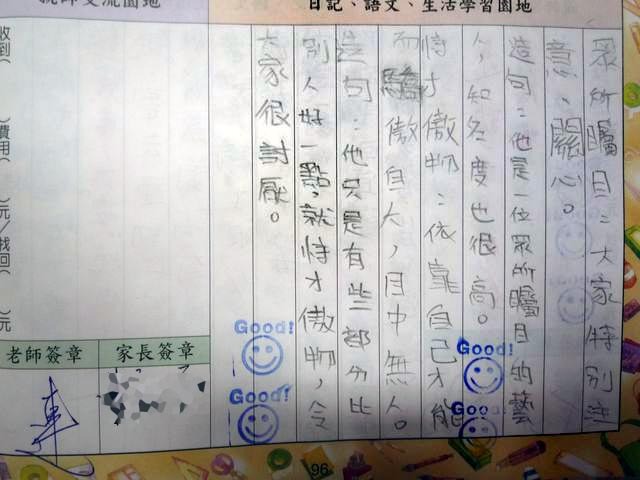 親師交流園地
日記、語文、生活學習園地
眾所矚目：大家特別注
意、關心。
造句：他是一位眾所矚目的藝
人，知名度也很高。
恃才傲物：依靠自己才能
而驕傲自大，目中無人。
造句：他只是有些部分比
別人好一點，就恃才傲物，令
大家很討厭。
收到
費用
元/找回
元
老師簽章
家長簽章
Good!
Good!
Good!
Good!
96